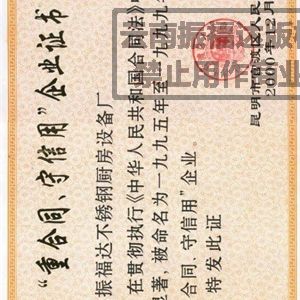 “重合同、守信用”企业证书
振福达不锈钢厨房设备厂
在贯彻执行《中华人民共和国合同法》
著，被命名为一九九五年至一九九九
合同、守信用”企业。
特发此证
昆明市官渡区人民
2000年12月
云南振福达版权
禁止用作